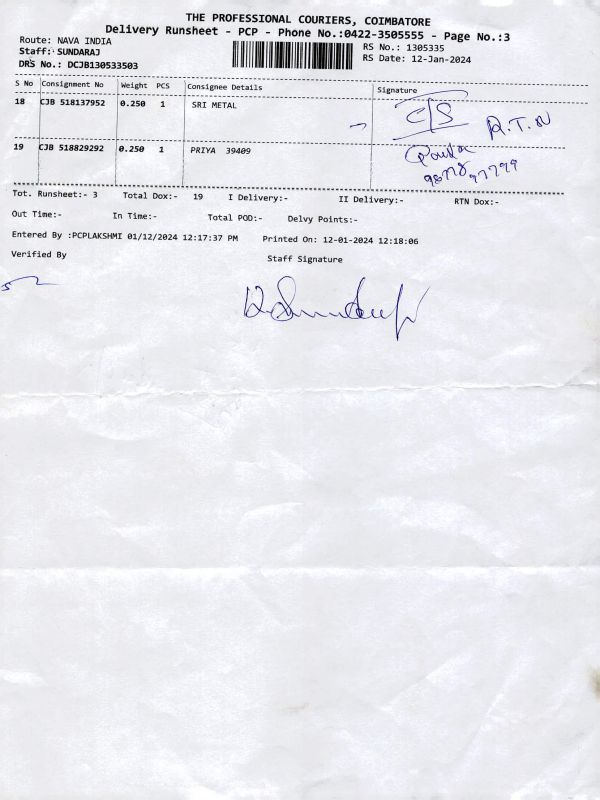 THE PROFESSIONAL COURIERS, COIMBATORE
Delivery Runsheet - PCP - Phone No.:0422-3505555 - Page No.:3
Route: NAVA INDIA
RS No.: 1305335
Staff: SUNDARAJ
RS Date: 12-Jan-2024
DRS No.: DCJB130533503
S No Consignment No Weight PCS Consignee Details Signature
18 CJB 518137952 0.250 1 SRI METAL
C/S R.T.N
19 CJB 518829292 0.250 1 PRIYA 39409
Tot. Runsheet:- 3 Total Dox:- 19 I Delivery:- II Delivery:- RTN Dox:-
Out Time:- In Time:- Total POD:- Delvy Points:-
Entered By :PCPLAKSHMI 01/12/2024 12:17:37 PM Printed On: 12-01-2024 12:18:06
Verified By Staff Signature